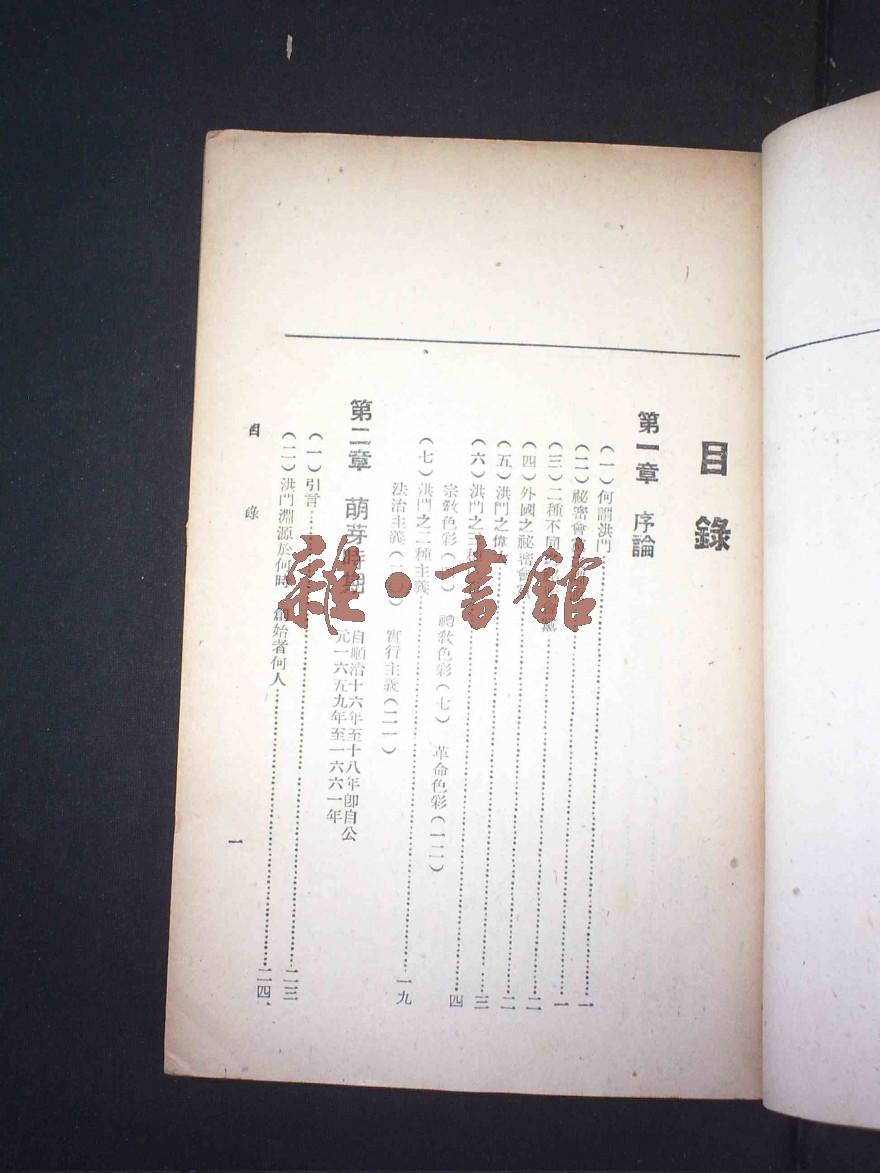 目錄
第一章 序論
(一)何謂洪門……一
(二)祕密會……一
(三)二種不同……黨……一
(四)外國之祕密會……二
(五)洪門之偉……二
(六)洪門之三種……三
宗教色彩(四) 禮教色彩(七) 革命色彩(一二)……四
(七)洪門之二種主義……一九
法治主義(二〇) 實行主義(二一)
第二章 萌芽時期 自順治十六年至十八年卽自公元一六五九年至一六六一年
(一)引言……二三
(二)洪門淵源於何時 創始者何人……二四
目錄
一
雜·書館